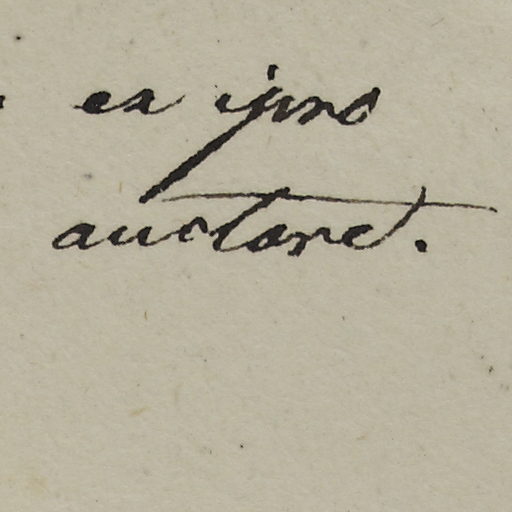 ex ipso
auctore.